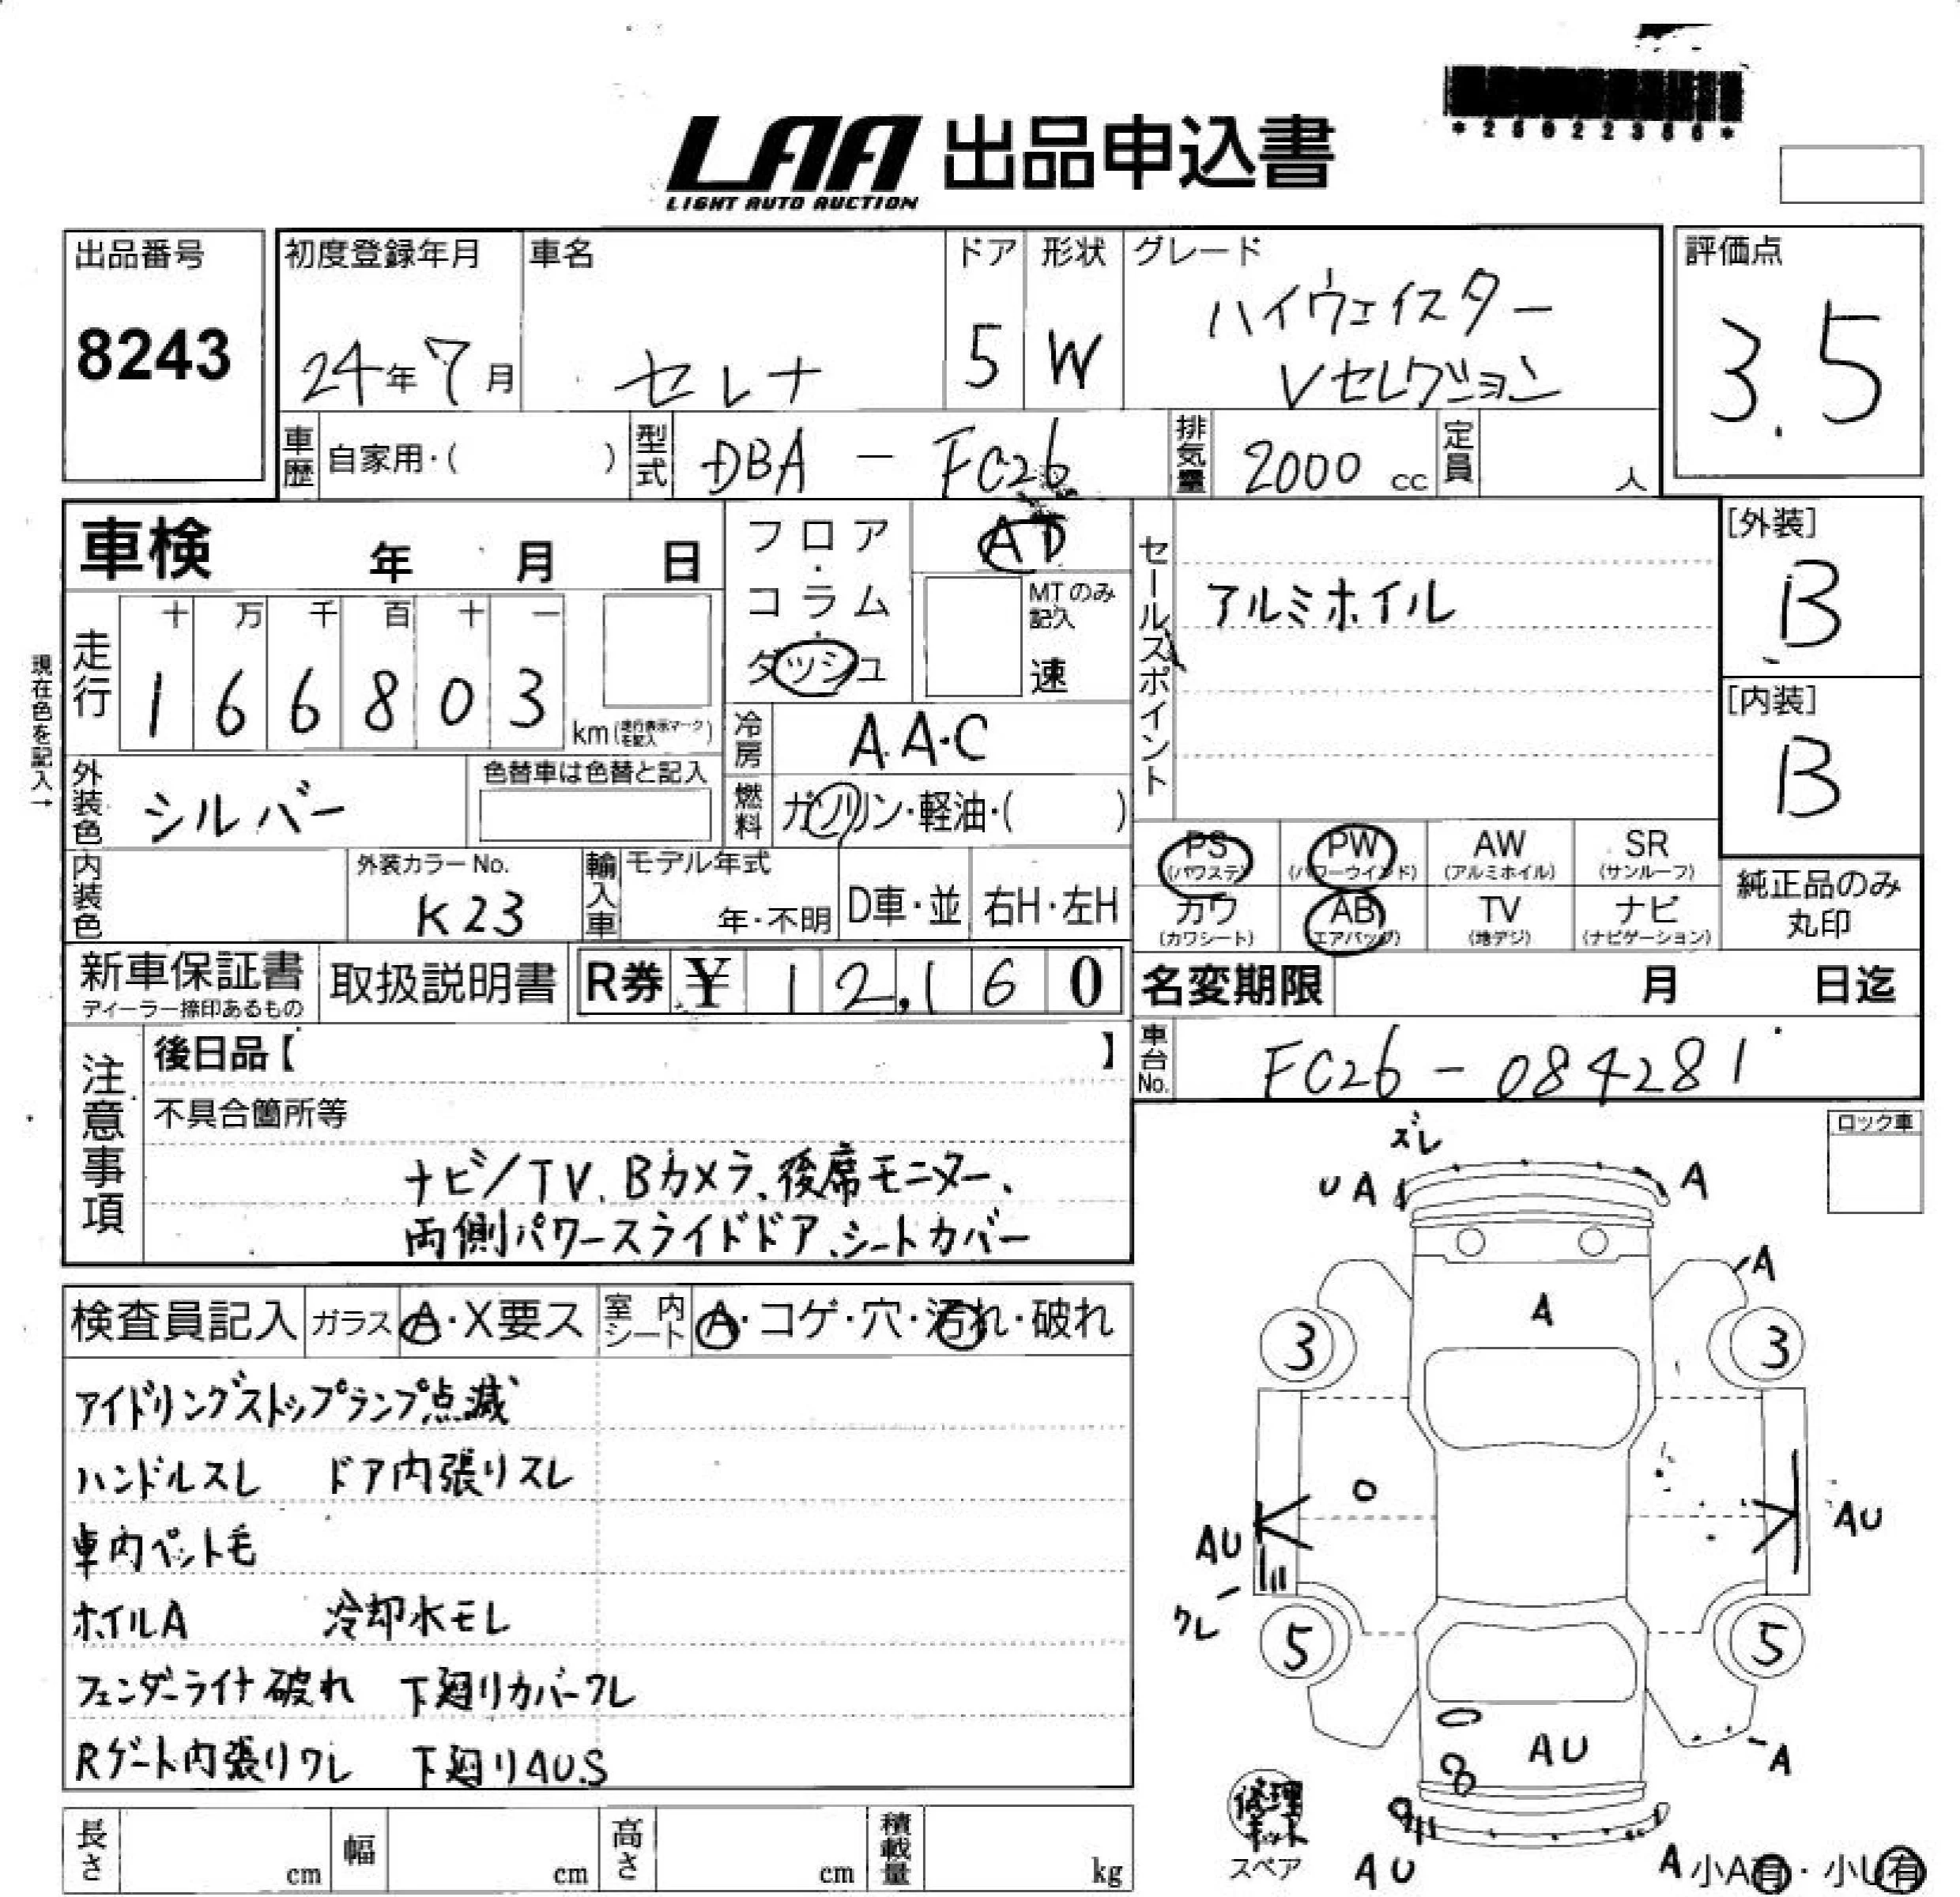 LAA 出品申込書
LIGHT AUTO AUCTION
出品番号
8243
初度登録年月
24年7月
車名
セレナ
ドア
5
形状
W
グレード
ハイウェイスター
Vセレクション
評価点
3.5
車歴 自家用・( )
型式 DBA - FC26
排気量 2000 cc
定員 人
車検 年 月 日
フロア・コラム・ダッシュ
AT
MTのみ記入
速
セールスポイント
アルミホイル
[外装]
B
[内装]
B
現在色を記入→
走行
十 万 千 百 十 一
1 6 6 8 0 3 km(走行表示マークを記入)
冷房 A.A.C
外装色 シルバー
色替車は色替と記入
燃料 ガソリン・軽油・( )
PS (パワステ)
PW (パワーウインド)
AW (アルミホイル)
SR (サンルーフ)
カワ (カワシート)
AB (エアバッグ)
TV (地デジ)
ナビ (ナビゲーション)
純正品のみ丸印
内装色
外装カラーNo.
K23
輸入車
モデル年式
年・不明
D車・並
右H・左H
新車保証書
ディーラー捺印あるもの
取扱説明書
R券 ¥ 12,160
名変期限 月 日迄
車台No. FC26-084281
注意事項
後日品【 】
不具合箇所等
ナビ/TV、Bカメラ、後席モニター、
両側パワースライドドア、シートカバー
ロック車
検査員記入
ガラス A・X要ス
室内シート A・コゲ・穴・汚れ・破れ
アイドリングストップランプ点滅
ハンドルスレ ドア内張りスレ
車内ペット毛
ホイルA 冷却水モレ
フェンダーライナ破れ 下廻りカバーワレ
Rゲート内張りワレ 下廻りAU.S
ズレ
UA
A
A
A
3
3
AU
AU
ワレ
5
5
AU
A
修理キット
スペア
AU
A
小A有・小U有
長さ cm
幅 cm
高さ cm
積載量 kg